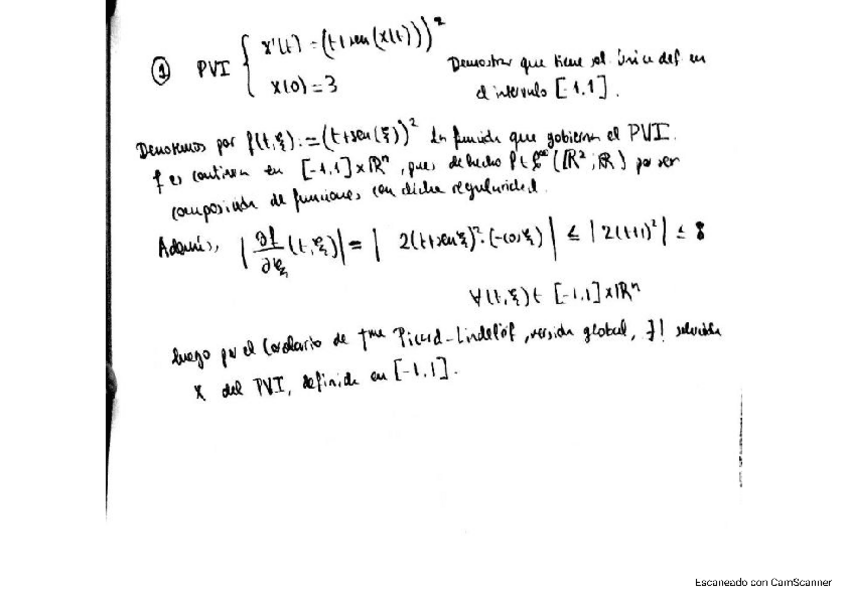 ① PVI { x'(t) = (t+sen(x(t)))²
x(0) = 3
Demostrar que tiene sol. única def en
el intervalo [-1,1].
Denotemos por f(t,ξ) := (t+sen(ξ))² la función que gobierna el PVI.
f es continua en [-1,1]×ℝⁿ, pues de hecho f ∈ C^∞(ℝ²; ℝ) por ser
composición de funciones con dicha regularidad.
Además, |∂f/∂ξ (t,ξ)| = | 2(t+sen ξ)²·(-cos ξ) | ≤ |2(t+1)²| ≤ 8
∀(t,ξ) ∈ [-1,1]×ℝⁿ
luego por el Corolario de Tma Picard-Lindelöf, versión global, ∃! solución
x del PVI, definida en [-1,1].
Escaneado con CamScanner